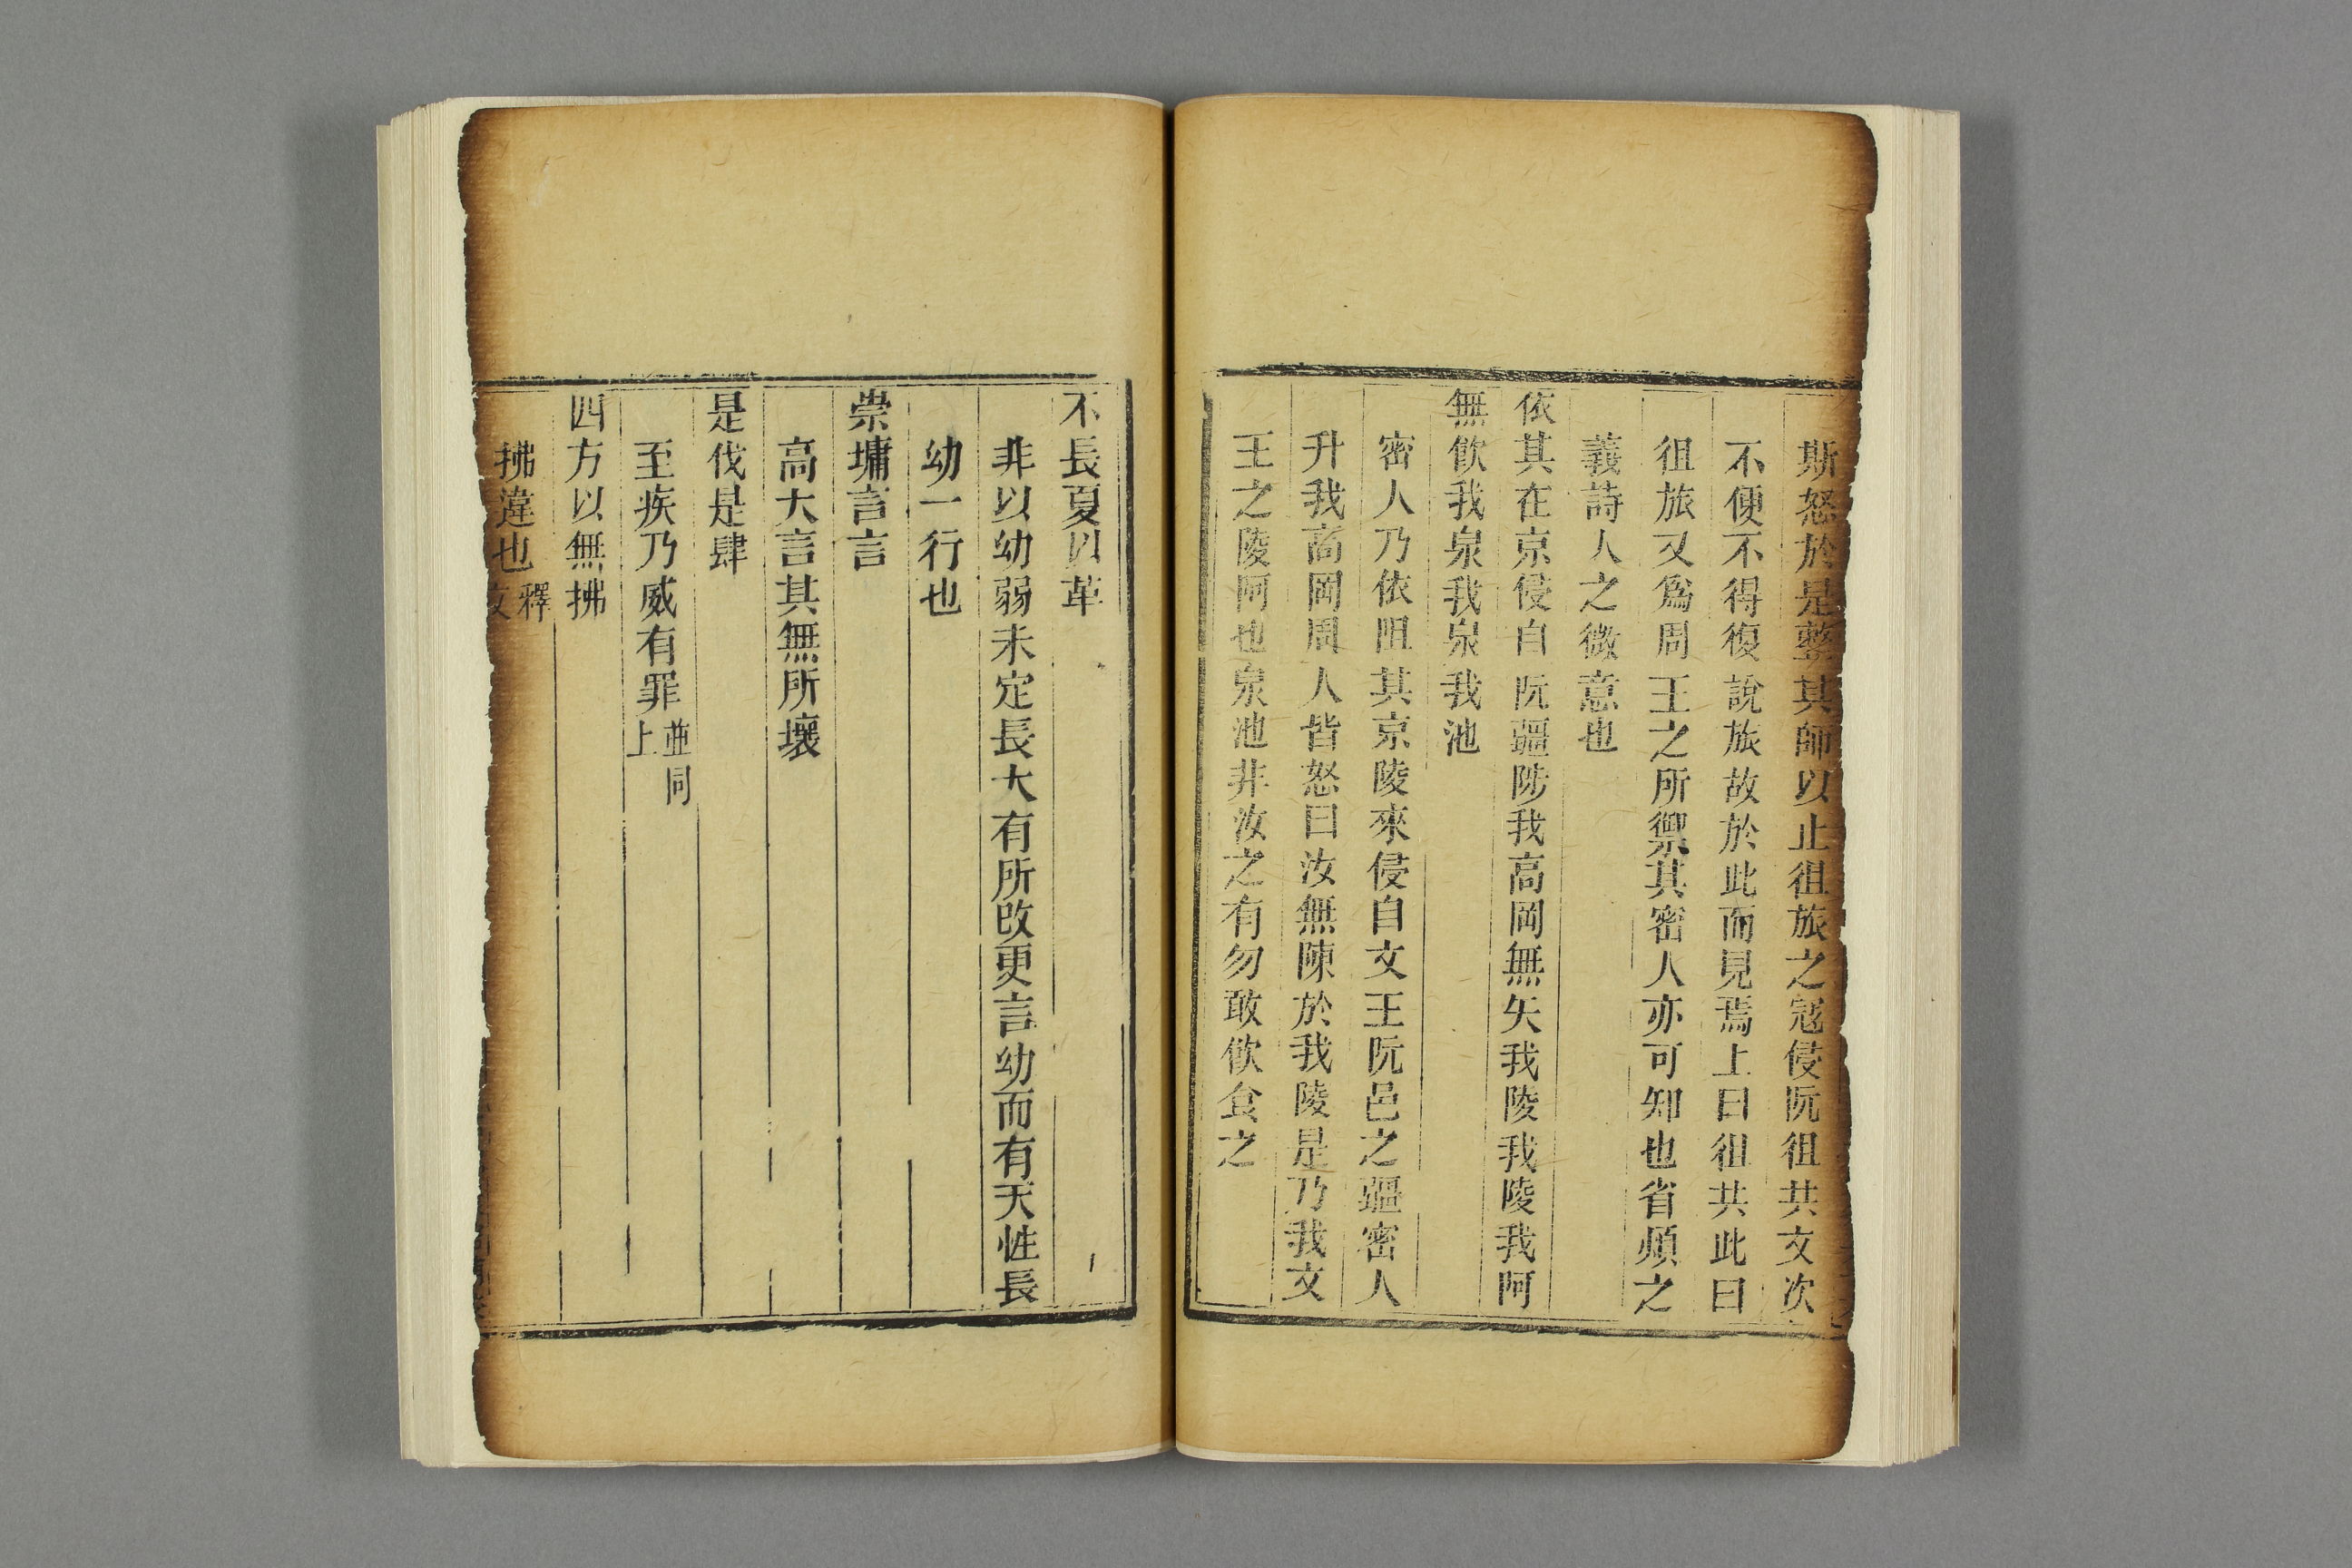 斯怒於是整其師以止徂旅之寇侵阮徂共文次
不便不得復說旅故於此而見焉上曰徂共此曰
徂旅又爲周王之所禦其密人亦可知也省煩之
義詩人之微意也
依其在京侵自阮疆陟我高岡無矢我陵我陵我阿
無飮我泉我泉我池
密人乃依阻其京陵來侵自文王阮邑之疆密人
升我高岡周人皆怒曰汝無陳於我陵是乃我文
王之陵阿也泉池非汝之有勿敢飮食之
不長夏以革
非以幼弱未定長大有所改更言幼而有天性長
幼一行也
崇墉言言
高大言其無所壞
是伐是肆
至疾乃威有罪並同上
四方以無拂
拂違也釋文